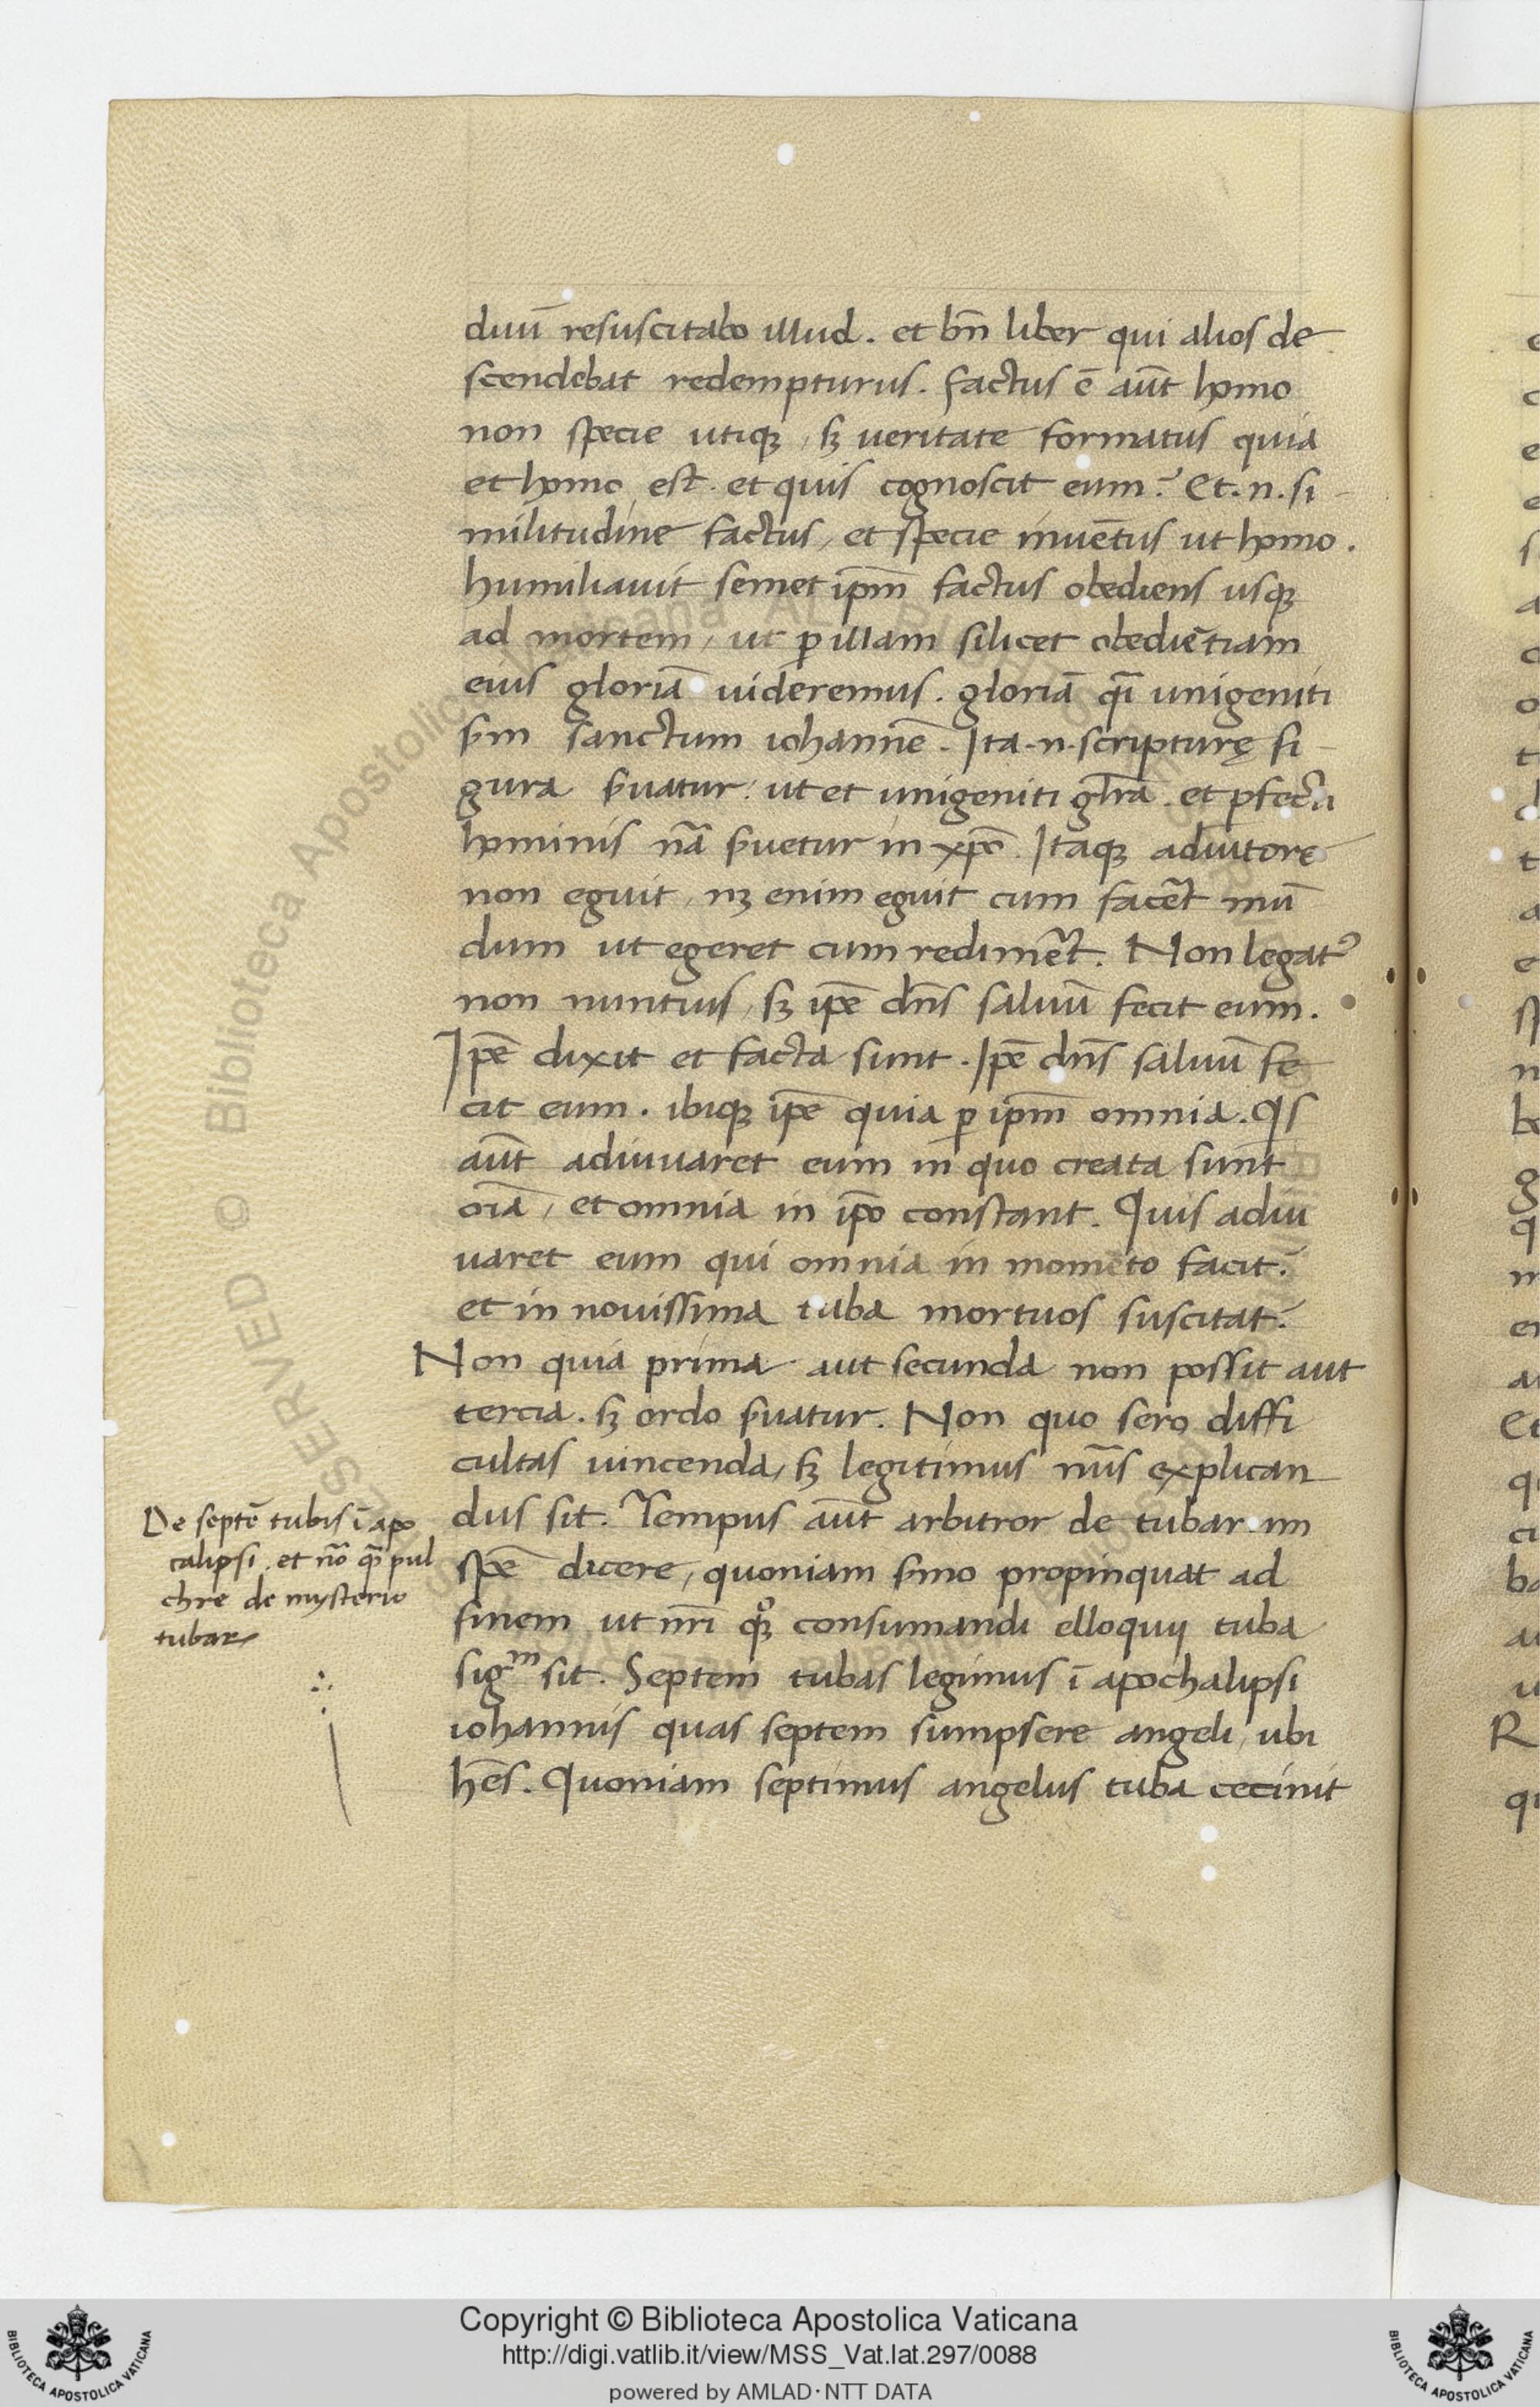 duū resuscitabo illud. et bn̄ liber qui alios de
scendebat redempturus. factus ē aūt homo
non specie utiqꝫ, sꝫ ueritate formatus quia
et homo est. et quis cognoscit eum? Et.n.si-
militudine factus, et specie inuētus ut homo.
humiliauit semet ip̄m factus obediens usqꝫ
ad mortem, ut ꝑ illam silicet obediētiam
eius gloriā uideremus. gloriā qͣi unigeniti
sm̄ sanctum iohannē. Ita.n.scripturę fi-
gura ẜuatur: ut et unigeniti gl̄ia. et ꝑfecti
hominis nā ẜuetur in xp̄o. Itaqꝫ adiutore
non eguit, nꝫ enim eguit cum facēt mū
dum ut egeret cum redimēt. Non legatꝰ
non nuntius, sꝫ ip̄e dn̄s saluū fecit eum.
Ip̄e dixit et facta sunt. Ip̄e dn̄s saluū fe
cit eum. ibiqꝫ ip̄e quia ꝑ ip̄m omnia. Qͥs
aūt adiuuaret eum in quo creata sunt
oīa, et omnia in ip̄o constant. Quis adiu
uaret eum qui omnia in momēto facit?
et in nouissima tuba mortuos suscitat?
Non quia prima aut secunda non possit aut
tercia. sꝫ ordo ẜuatur. Non quo sero diffi
cultas uincenda, sꝫ legitimus nūs explican
dus sit. Tempus aūt arbitror de tubar. im
spē dicere, quoniam ẜmo propinquat ad
finem ut nr̄i qͦqꝫ consumandi elloquij tuba
sigᵐ sit. Septem tubas legimus ī apochalipsi
iohannis quas septem sumpsere angeli, ubi
hēs. Quoniam septimus angelus tuba cecinit
De septē tubis ī apo
calipsi. et nō qͣꝫ pul
chre de mysterio
tubaꝝ
Copyright © Biblioteca Apostolica Vaticana
http://digi.vatlib.it/view/MSS_Vat.lat.297/0088
powered by AMLAD·NTT DATA
BIBLIOTECA APOSTOLICA VATICANA
BIBLIOTECA APOSTOLICA VATICANA